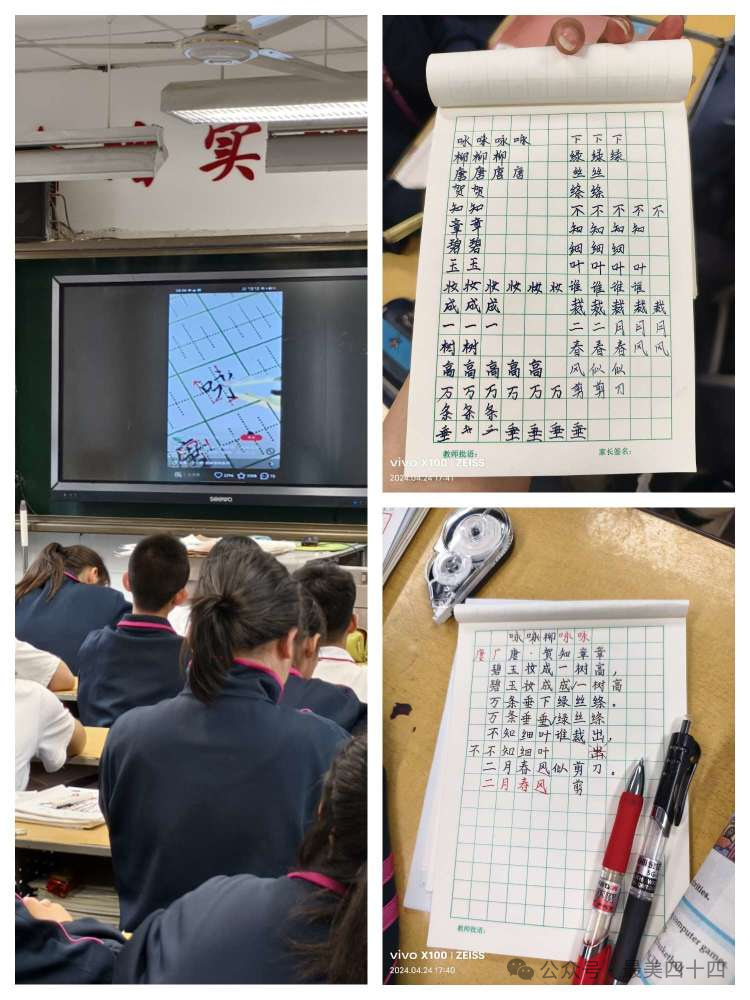 实
seewo
咏 咏 咏 咏 下 下 下
柳 柳 柳 绿 绿 绿
唐 唐 唐 唐 丝 丝
贺 贺 绦 绦
知 知 不 不 不 不 不
章 章 知 知 知 知
碧 碧 细 细 细
玉 玉 叶 叶 叶 叶
妆 妆 妆 妆 妆 妆 谁 谁 谁 谁
成 成 成 裁 裁 裁 裁 裁
一 一 一 二 二 月 月 月
树 树 春 春 春 风 风
高 高 高 高 高 风 似 似
万 万 万 万 万 万 剪 剪 刀
条 条 条
垂 垂 垂 垂 垂
教师批语： 家长签名：
vivo X100 | ZEISS
2024.04.24 17:41
咏 咏 柳 咏 咏
唐 厂 唐 · 贺 知 章 章
碧 玉 妆 成 一 树 高 ，
碧 玉 妆 成 成 / 一 树 高
万 条 垂 下 绿 丝 绦 。
万 条 垂 垂 / 绿 丝 绦
不 知 细 叶 谁 裁 出 ，
不 不 知 细 叶 出
二 月 春 风 似 剪 刀 。
二 月 春 风 剪
教师批语：
computer games
vivo X100 | ZEISS
2024.04.24 17:40
公众号 · 最美四十四